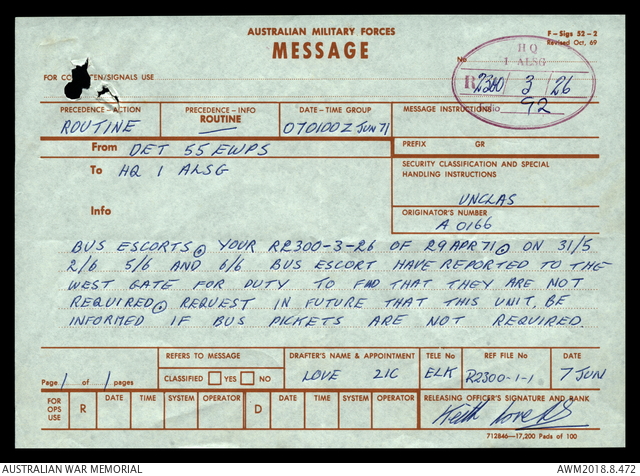 AUSTRALIAN MILITARY FORCES
MESSAGE
F-Sigs 52-2
Revised Oct, 69
No
HQ
1 ALSG
R2300/3/26
Folio 92
FOR COMCEN/SIGNALS USE
PRECEDENCE-ACTION
ROUTINE
PRECEDENCE-INFO
ROUTINE
—
DATE-TIME GROUP
070100Z JUN 71
MESSAGE INSTRUCTIONS
From DET 55 EWPS
PREFIX GR
To HQ 1 ALSG
SECURITY CLASSIFICATION AND SPECIAL
HANDLING INSTRUCTIONS
UNCLAS
Info
ORIGINATOR'S NUMBER
A 0166
BUS ESCORTS. YOUR R2300-3-26 OF 29 APR 71. ON 31/5
2/6 5/6 AND 6/6 BUS ESCORT HAVE REPORTED TO THE
WEST GATE FOR DUTY TO FIND THAT THEY ARE NOT
REQUIRED. REQUEST IN FUTURE THAT THIS UNIT, BE
INFORMED IF BUS PICKETS ARE NOT REQUIRED.
Page 1 of 1 pages
REFERS TO MESSAGE
CLASSIFIED YES NO
DRAFTER'S NAME & APPOINTMENT
LOVE 2IC
TELE No
ELK
REF FILE No
R2300-1-1
DATE
7 JUN
FOR OPS USE
R DATE TIME SYSTEM OPERATOR
D DATE TIME SYSTEM OPERATOR
RELEASING OFFICER'S SIGNATURE AND RANK
Keith Love
712846—17,200 Pads of 100
AUSTRALIAN WAR MEMORIAL
AWM2018.8.472